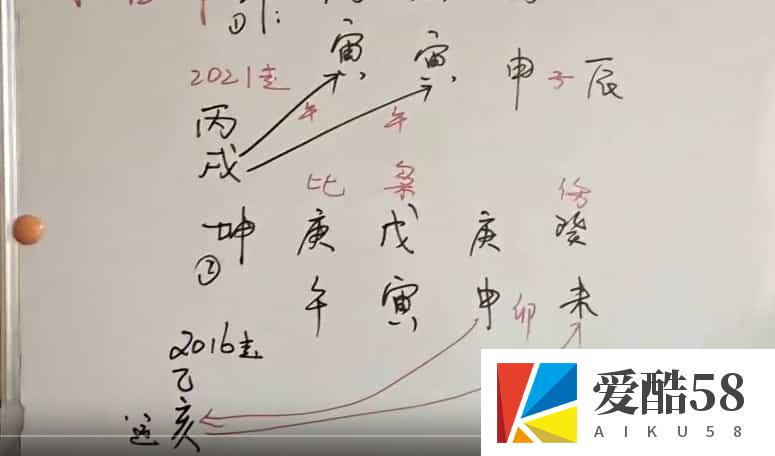 ①
寅 寅 申 子 辰
2021走
丙 午 午
戌
比 枭 伤
坤 庚 戊 庚 癸
②
午 寅 申 卯 未
2016走
乙
运 亥
爱酷58
AIKU58